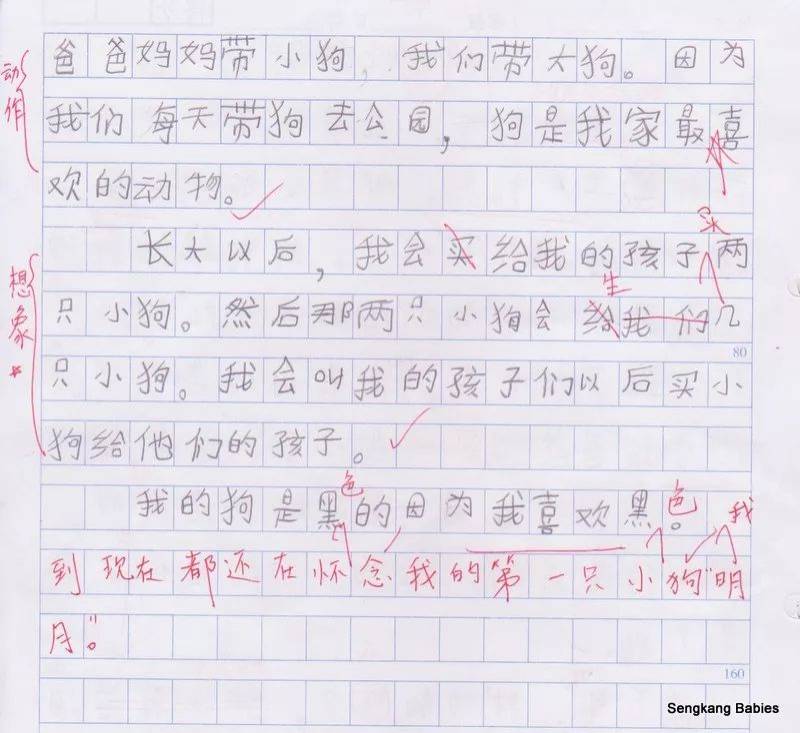 爸爸妈妈带小狗,我们带大狗。因为
动作
我们每天带狗去公园,狗是我家最喜
欢的动物。
买
长大以后,我会买给我的孩子两
想象
生
只小狗。然后那两只小狗会给我们几
80
只小狗。我会叫我的孩子们以后买小
狗给他们的孩子。
色
我的狗是黑的因为我喜欢黑色。我
到现在都还在怀念我的第一只小狗"明
月"。
160
Sengkang Babies